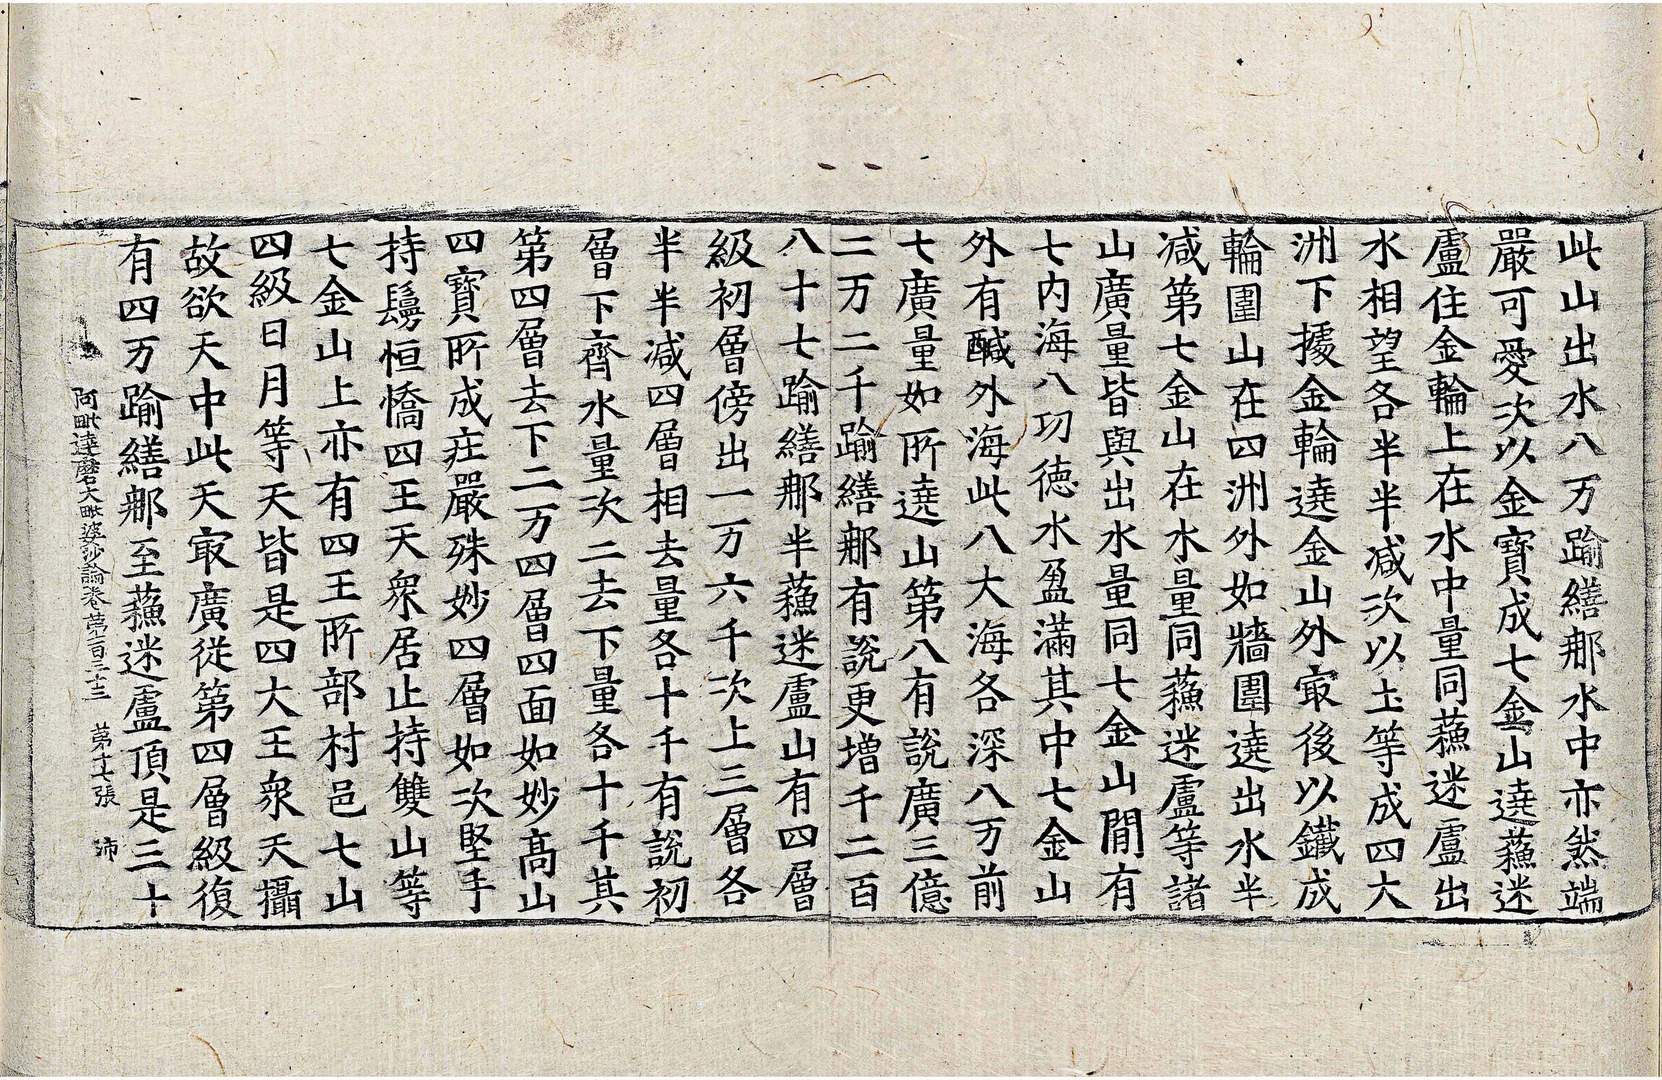 此山出水八万踰繕那水中亦然端
嚴可愛次以金寶成七金山遶蘓迷
盧住金輪上在水中量同蘓迷盧出
水相望各半半减次以土等成四大
洲下據金輪遶金山外㝡後以鐵成
輪圍山在四洲外如牆圍遶出水半
减第七金山在水量同蘓迷盧等諸
山廣量皆與出水量同七金山間有
七内海八功徳水盈滿其中七金山
外有醎外海此八大海各深八万前
七廣量如所遶山第八有說廣三億
二万二千踰繕那有說更增千二百
八十七踰繕那半蘓迷盧山有四層
級初層傍出一万六千次上三層各
半半减四層相去量各十千有說初
層下齊水量次二去下量各十千其
第四層去下二万四層四面如妙髙山
四寶所成㽵嚴殊妙四層如次堅手
持鬘恒憍四王天衆居止持雙山等
七金山上亦有四王所部村邑七山
四級日月等天皆是四大王衆天攝
故欲天中此天㝡廣從第四層級復
有四万踰繕那至蘓迷盧頂是三十
阿毗達磨大毗婆沙論卷第一百三十三 第十七張 沛